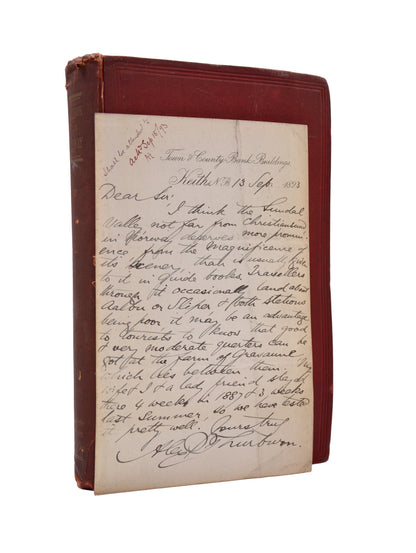 Shall be attended to
Ackd Sep 18/93
Town & County Bank Buildings
Keith N.B. 13 Sep. 1893
Dear Sir,
I think the Sundal
Valley not far from Christiansund
in Norway deserves more promin-
ence from the magnificence of
its scenery, than is usually given
to it in Guide books. Travellers
through it occasionally land about
or & both stations
being poor it may be an advantage
to tourists to know that good
& very moderate quarters can be
got at the farm of
which lies between them. My
wife & I & a lady friend stayed
there 4 weeks in 1887 & 3 weeks
last Summer, so we have tested
it pretty well. Yours truly